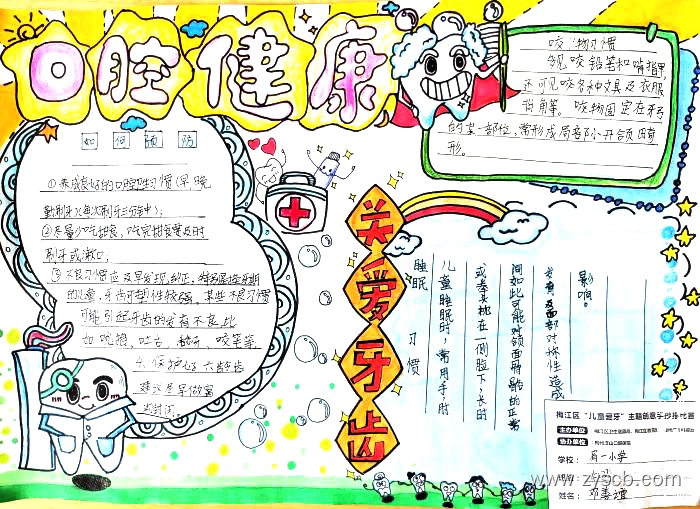 口腔健康
咬物习惯
多见咬铅笔和啃指甲,
还可见咬各种文具及衣服
衣角等。咬物固定在牙弓
的某一部位,常形成局部小开颌畸
形。
如何预防
①养成良好的口腔卫习惯(早、晚
勤刷牙)(每次刷牙三分钟);
②尽量少吃甜食,吃完甜食要及时
刷牙或漱口。
③不良习惯应及早发现、纠正,
的儿童,牙齿可塑性较强,某些不良习惯
可能引起牙齿的发育不良比
如吮指、吐舌、咬笔等。
4、保护好六龄齿
建议尽早做窝
沟封闭。
关爱牙齿
睡眠习惯
儿童睡眠时,常用手、肘
或拳头枕在一侧脸下,长时
间如此可能对颌面骨骼的正常
发育及面部对称性造成
影响。
梅江区“儿童爱牙”主题创意手抄报比赛
主办单位:
协办单位:
学校:
班级:
姓名:
www.zyscb.com